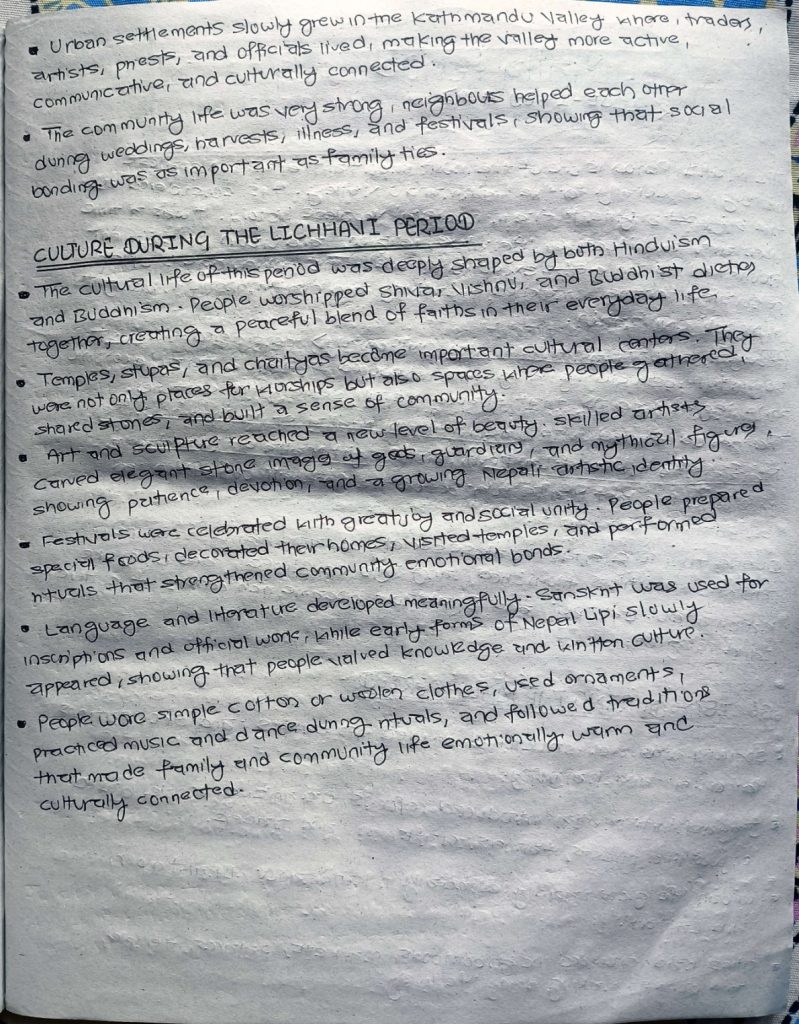 • Urban settlements slowly grew in the Kathmandu Valley where, traders,
artists, priests, and officials lived, making the valley more active,
communicative, and culturally connected.
• The community life was very strong, neighbours helped each other
during weddings, harvests, illness, and festivals, showing that social
bonding was as important as family ties.
CULTURE DURING THE LICHHAVI PERIOD
• The cultural life of this period was deeply shaped by both Hinduism
and Buddhism. People worshipped Shiva, Vishnu, and Buddhist dieties
together, creating a peaceful blend of faiths in their everyday life.
• Temples, stupas, and chaityas become important cultural centers. They
were not only places for worships but also spaces where people gathered,
shared stories, and built a sense of community.
• Art and sculpture reached a new level of beauty. Skilled artists
carved elegant stone images of gods, guardians, and mythical figures,
showing patience, devotion, and a growing Nepali artistic identity.
• Festivals were celebrated with great joy and social unity. People prepared
special foods, decorated their homes, visited temples, and performed
rituals that strengthened community emotional bonds.
• Language and literature developed meaningfully. Sanskrit was used for
inscriptions and official work, while early forms of Nepal Lipi slowly
appeared, showing that people valued knowledge and written culture.
• People wore simple cotton or woolen clothes, used ornaments,
practiced music and dance during rituals, and followed traditions
that made family and community life emotionally warm and
culturally connected.